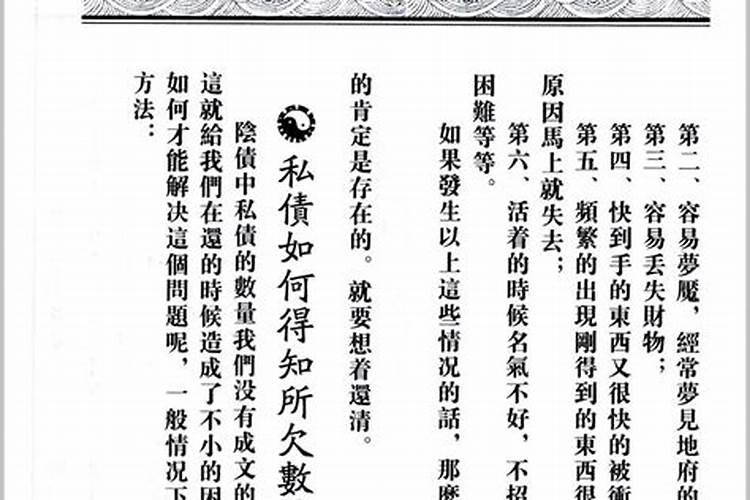 第二、容易夢魘，經常夢見地府的
第三、容易丟失財物；
第四、快到手的東西又很快的被
第五、頻繁的出現剛得到的東西很
原因馬上就失去；
第六、活着的時候名氣不好，不招
困難等等。
如果發生以上這些情况的話，那麽
的肯定是存在的。就要想着還清。
私債如何得知所欠數
陰債中私債的數量我們没有成文的
這就給我們在還的時候造成了不小的困
如何才能解决這個問題呢，一般情况下
方法：